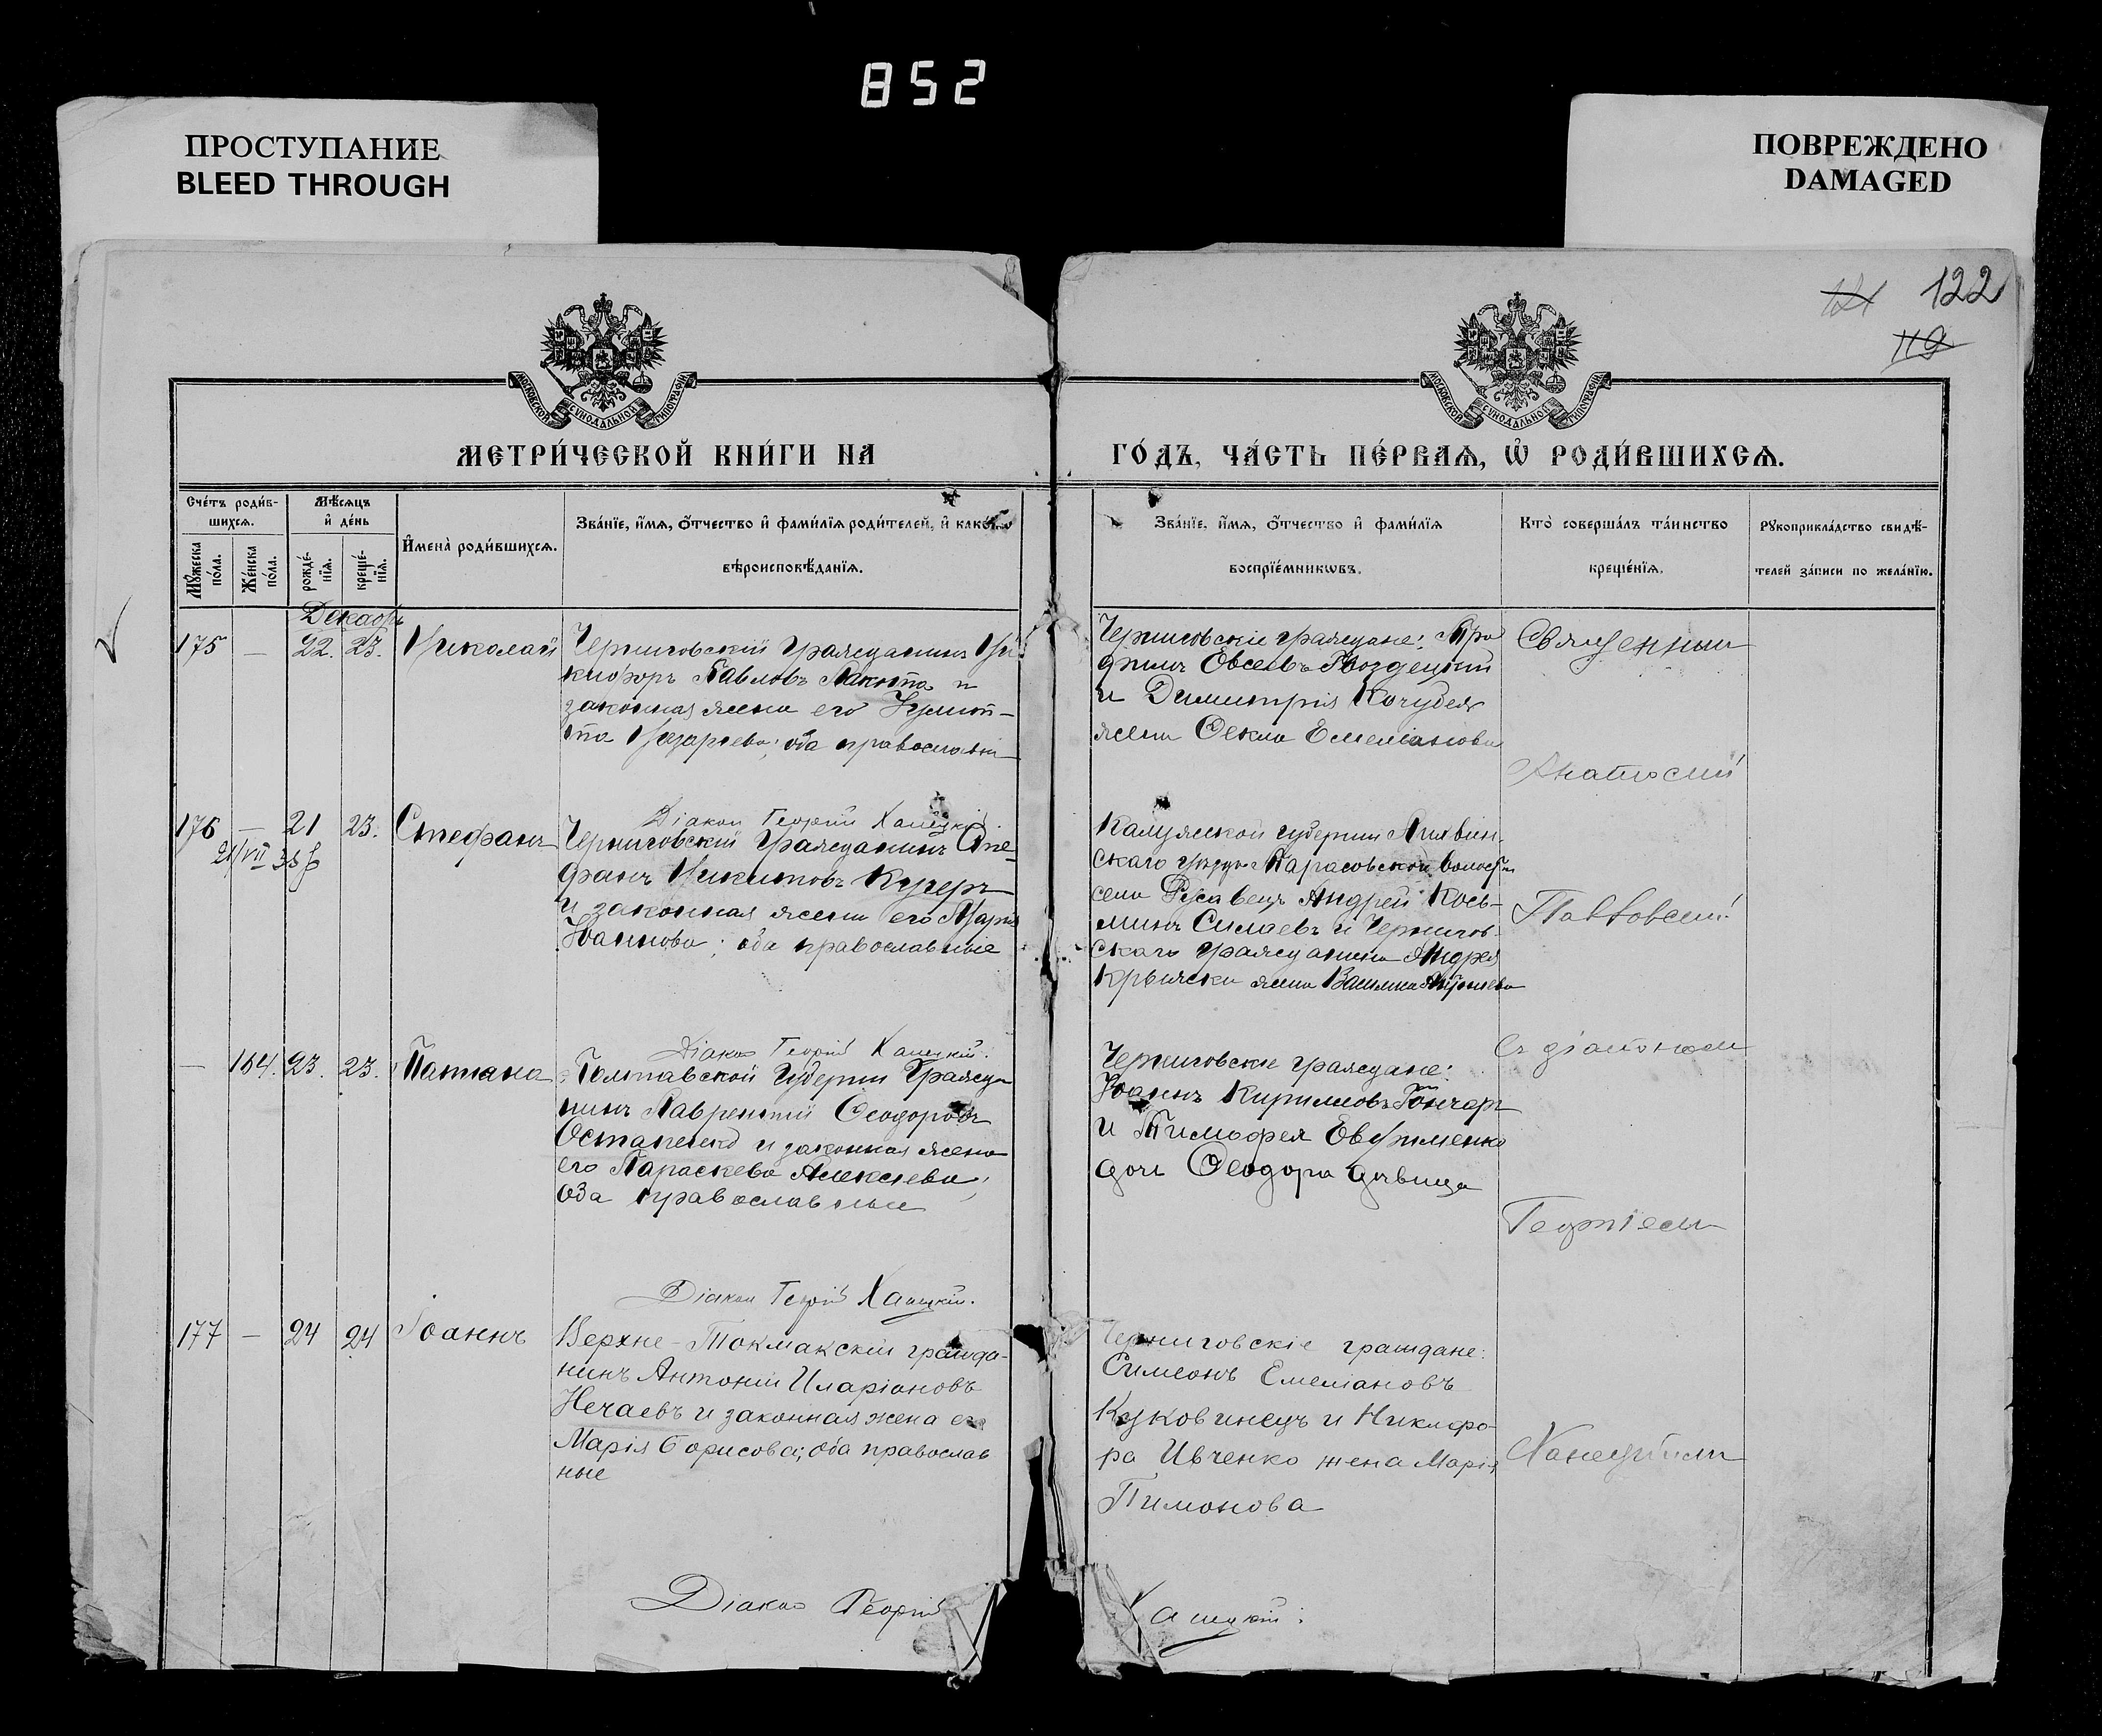 852
ПРОСТУПАНИЕ
BLEED THROUGH
ПОВРЕЖДЕНО
DAMAGED
122
119
МОСКОВСКОЙ СѴНОДАЛЬНОЙ ТИПОГРАФІИ
МОСКОВСКОЙ СѴНОДАЛЬНОЙ ТИПОГРАФІИ
МЕТРИ́ЧЕСКОЙ КНИ́ГИ НА
ГО́ДЪ, ЧА́СТЬ ПЕ́РВАѦ, Ѡ РОДИ́ВШИХСѦ.
Сче́тъ роди́в-
шихсѧ.
Мꙋ́жеска по́ла.
Же́нска по́ла.
Мѣ́сѧцъ
и҆ де́нь
рожде́-
нїѧ.
креще́-
нїѧ.
И҆мена̀ роди́вшихсѧ.
Зва́нїе, и҆́мѧ, ѻ҆́тчество и҆ фами́лїѧ роди́телей, и҆ како́гѡ
вѣроисповѣ́данїѧ.
Зва́нїе, и҆́мѧ, ѻ҆́тчество и҆ фами́лїѧ
воспрїе́мникѡвъ.
Кто̀ соверша́лъ та́инство
креще́нїѧ.
Рꙋкоприкла́дство свидѣ́-
телей за́писи по жела́нїю.
Декабрь
175 — 22. 23. Николай
Черниговскій гражданинъ Ни-
кифоръ Павловъ Лакюта и
законная жена его
Назарьева; оба православн
Черниговскіе граждане: Тро
фимъ Евсеевъ Гвоздецкій
и Димитрія Кочубея
жена Ѳекла Емеліанова
Священник
Анатолій
Діакон Георгій Ханецкій.
176 — 21 23. Стефанъ
21/VII 38
Черниговскій гражданинъ Сте-
фанъ Никитовъ Кучеръ
и законная жена его Марія
Іоаннова; оба православные
Калужской губерніи Лихвин-
скаго уезда Тарасовской волости
села Русавецъ Андрей Кось-
минъ Силаевъ и Чернигов-
скаго гражданина Андрея
жена
Діакон Георгій Ханецкій.
— 164. 23. 23. Татіана
Полтавской губерніи гражда
нинъ Лаврентій Ѳеодоровъ
Остапенко и законная жена
его Параскева Алексіева;
оба православные
Черниговскіе граждане:
Іоаннъ Кирилловъ Гончаръ
и Тимофея Евфименко
дочь Ѳеодора девица
съ діакономъ
Георгіемъ
Діакон Георгій Ханецкій.
177 — 24 24 Іоаннъ
Верхне-Токмакскій гражда-
нинъ Антоній Иларіоновъ
Нечаевъ и законная жена его
Марія Борисова; оба православ
ные
Черниговскіе граждане:
Симеонъ Емеліановъ
Куковинецъ и Никифо-
ра Ивченко жена Марія
Пимонова
Ханецкимъ
Діаконъ Георгій
Ханецкій.